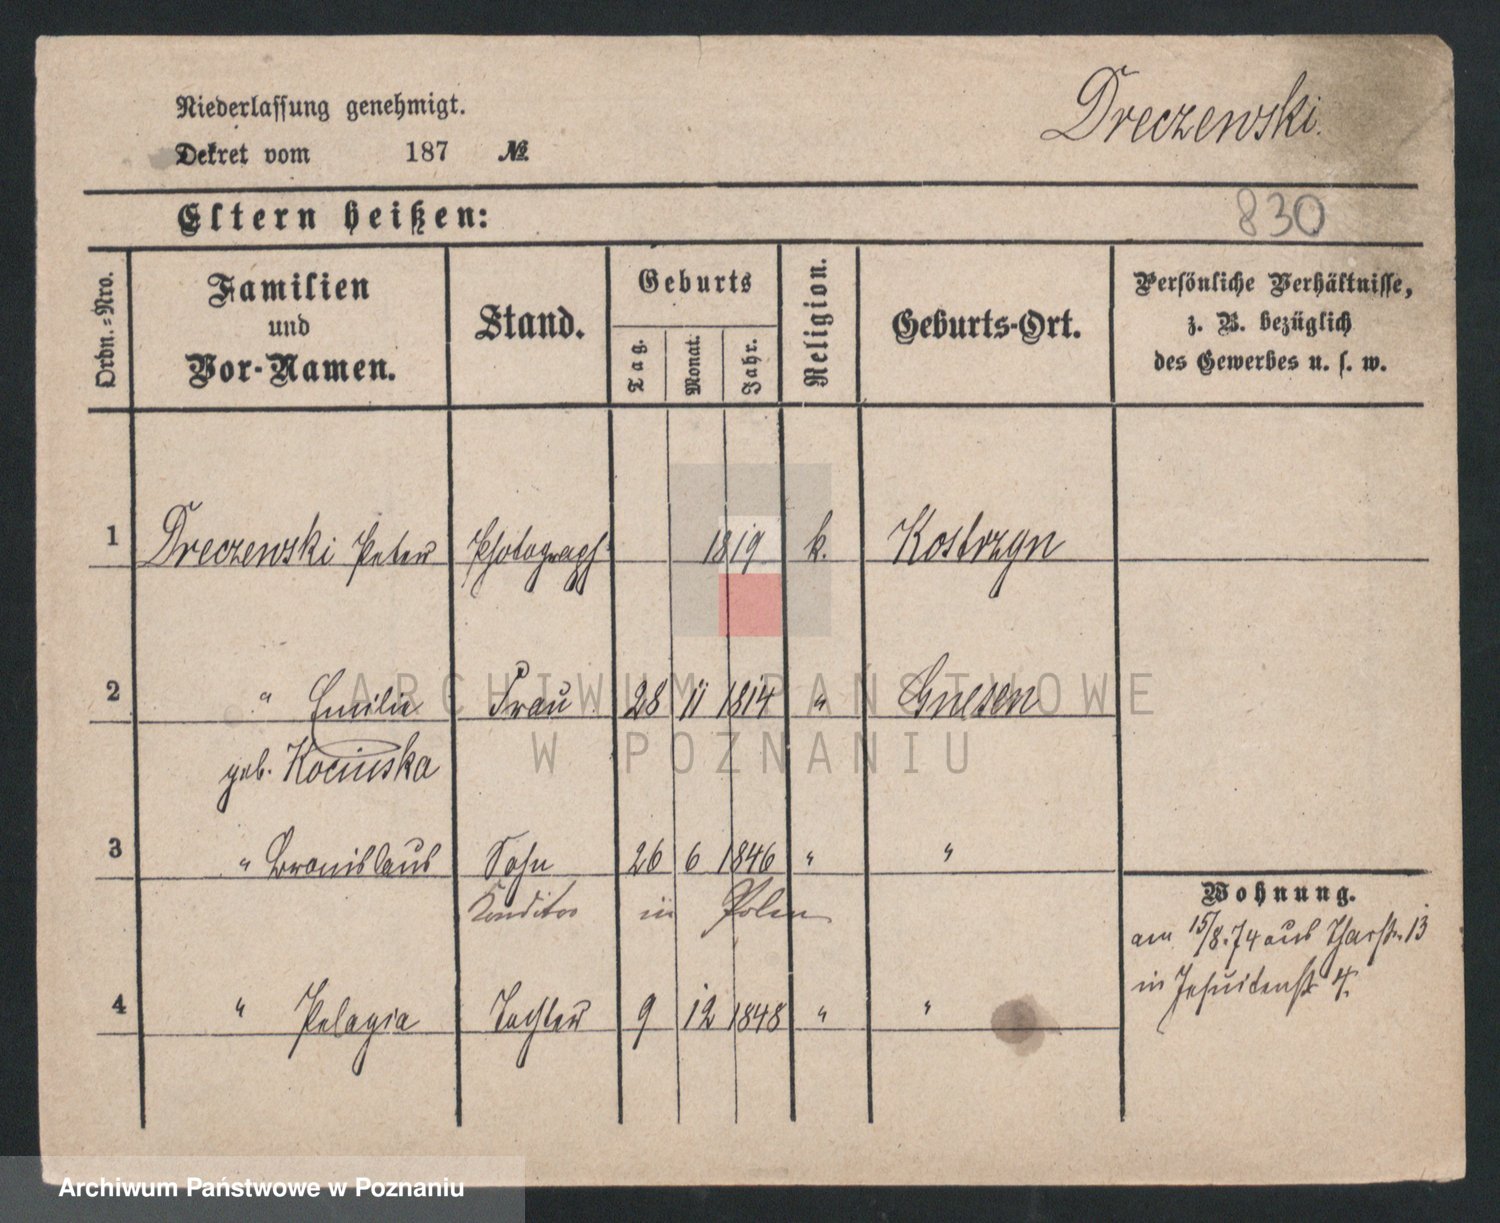 Dreczewski.
Niederlassung genehmigt.
Dekret vom 187 №
Eltern heißen:
830
Ordn.-Nro.
Familien und Vor-Namen.
Stand.
Geburts
Tag.
Monat.
Jahr.
Religion.
Geburts-Ort.
Persönliche Verhältnisse,
z. B. bezüglich
des Gewerbes u. s. w.
1 Dreczewski Peter Photograph 1819 k. Kostrzyn
2 " Emilie Frau 28 11 1814 " Gnesen
geb. Kocinska
3 " Bronislaus Sohn 26 6 1846 " "
Konditor in Polen
4 " Pelagia Tochter 9 12 1848 " "
Wohnung.
am 15/8.74 aus 13
in Jesuitenstr 4.
ARCHIWUM PAŃSTWOWE
W POZNANIU
Archiwum Państwowe w Poznaniu